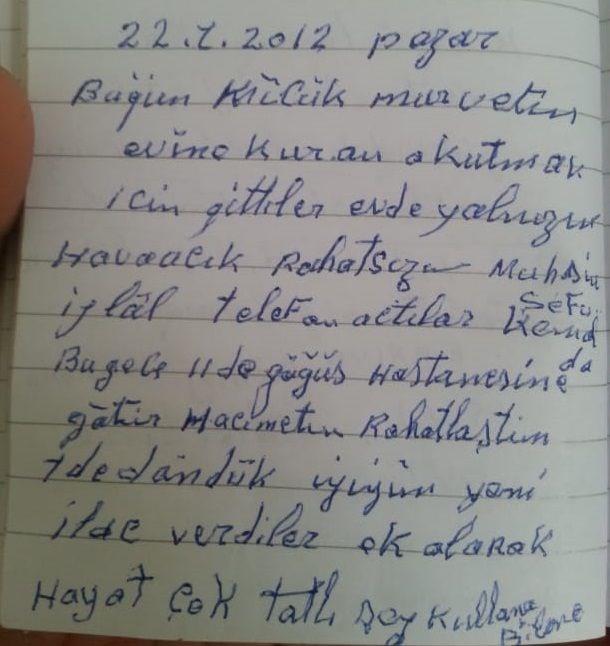 22.1.2012 pazar
Bugün Küçük mürvetin
evine kuran okutmak
için gittiler evde yalnızım
Havaacık Rahatsızım Muhsin
iglâl telefon açtılar Sefu. Kemal da
Bugece 11de göğüs Hastanesine
götür Rahatlaştım
1de döndük iyiyim yeni
ilaç verdiler ek olarak
Hayat Çok Tatlı şey kullana Bilene